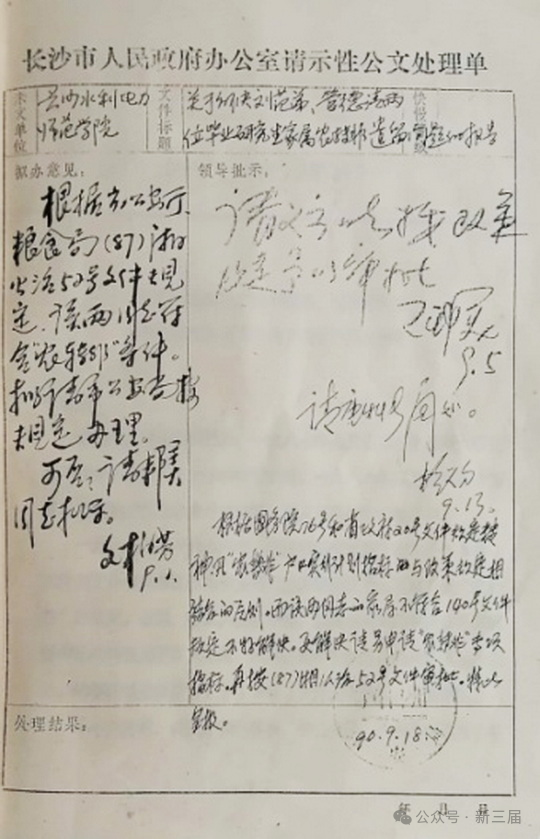 长沙市人民政府办公室请示性公文处理单
来文单位
长沙水利电力
师范学院
文件标题
关于解决刘范弟、营德清两
位毕业研究生家属农转非遗留问题的报告
拟办意见：
根据省公安厅、
粮食局(87)湘
公治52号文件规
定，该两同志符
合“农转非”条件。
拟请市公安局按
规定办理。
可否，请邦美
同志批示。
9.1.
领导批示：
请公安局按政策
规定予以审批
9.5
9.13.
根据国务院76号和省政府20号文件规定按
“农转非”户口实行计划指标的与政策规定相
结合的原则。而该两同志的家属不符合140号文件
规定不好解决。要解决请另申请“农转非”专项
指标。再按(87)湘公治52号文件审批。特此
呈报。
90.9.18.
处理结果：
年 月 日
公众号·新三届